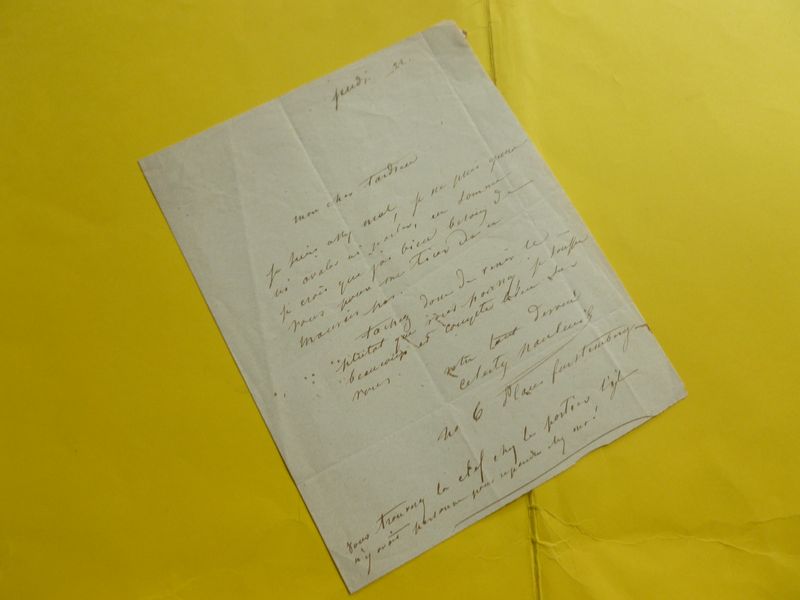 jeudi 21.
mon cher Tardieu
je suis assez mal, je ne puis guere
ni avaler ni parler, en somme
je crois que j'ai bien besoin de
vous pour me tirer de ce
mauvais pas.
tachez donc de venir le
plutot que vous pourrez je souffre
beaucoup et compte bien sur
vous
votre tout devoué
celestin nanteuil
no 6 Place furstemberg
vous trouverez la clef chez le portier s'il
n'y avait personne pour repondre chez moi!